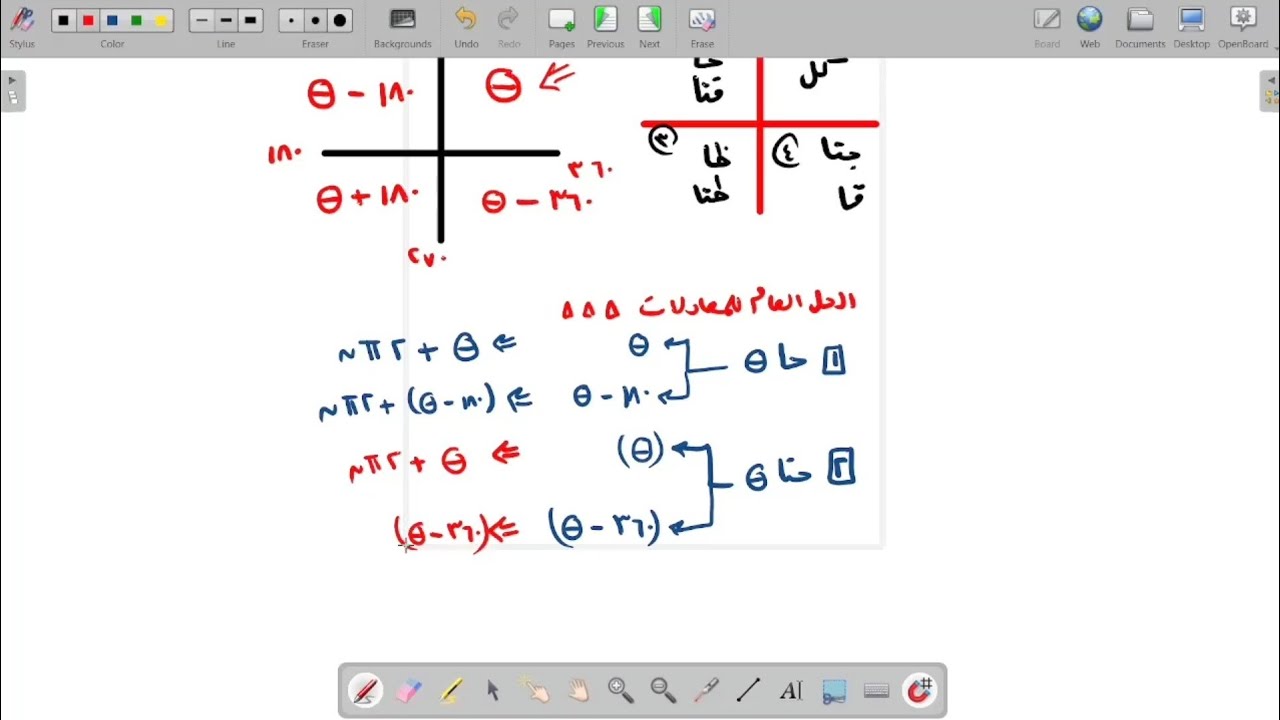 Stylus Color Line Eraser Backgrounds Undo Redo Pages Previous Next Erase Board Web Documents Desktop OpenBoard
θ
١٨٠ - θ
كل
قتا
١٨٠
٣٦٠
١٨٠ + θ
٣٦٠ - θ
٢٧٠
جتا ④
قا
③ ظا
ظتا
الحل العام للمعادلات ∆ ∆ ∆
١ حا θ
θ ⇐ θ + ٢πن
١٨٠ - θ ⇐ (١٨٠ - θ) + ٢πن
٢ حتا θ
(θ) ⇐ θ + ٢πن
(٣٦٠ - θ) ⇐ (٣٦٠ - θ)
AI